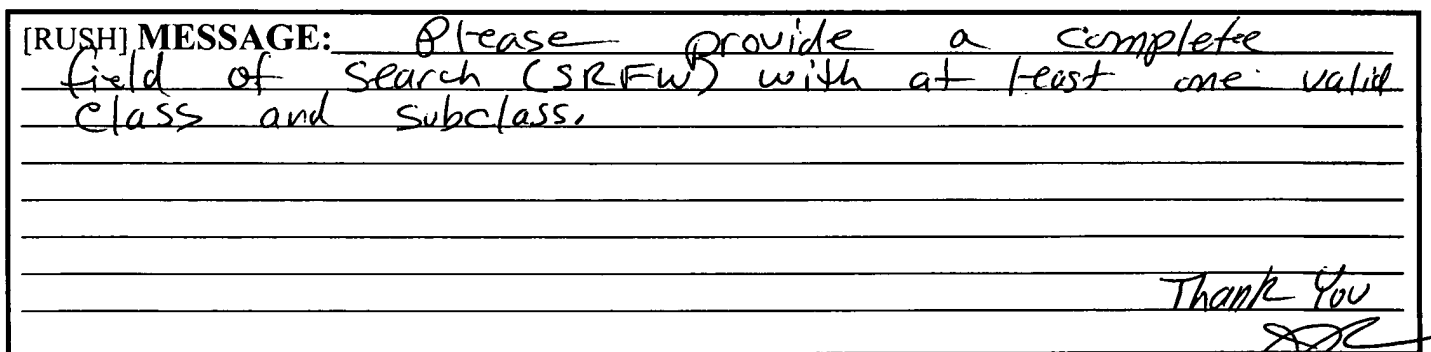 [RUSH] MESSAGE: Please provide a complete
field of search (SRFW) with at least one valid
class and subclass.
Thank You